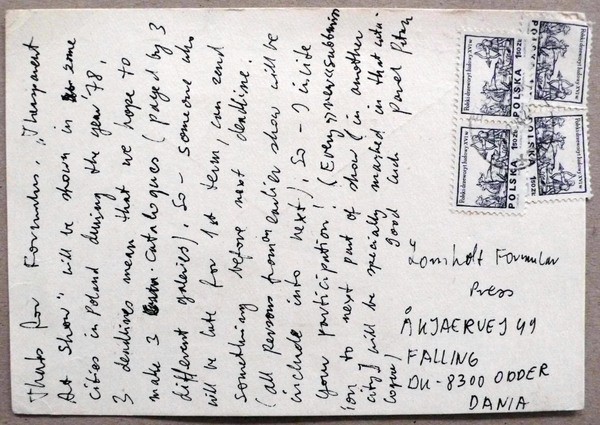 Thanks for Formulars. "Transparent
Art Show" will be shown in some
cities in Poland during the year 78,
3 deadlines mean that we hope to
make 3 catalogues (payed by 3
different galeries). So – someone who
will be late for 1st term, can send
something before next deadline.
(all persons from earlier show will be
include into next). So – I invite
your participation! (Every new submiss
ion to next part of show (in another
city) will be specially marked in that cata-
logue)
good luck Pavel Petasz
Lomholt Formular
Press
ÅKJAERVEJ 49
FALLING
DK-8300 ODDER
DANIA
Polski drzeworyt ludowy XVI w
POLSKA 1.50 ZŁ
Polski drzeworyt ludowy XVI w
POLSKA 1.50 ZŁ
Polski drzeworyt ludowy XVI w
POLSKA 1.50 ZŁ
Polski drzeworyt ludowy XVI w
POLSKA 1.50 ZŁ